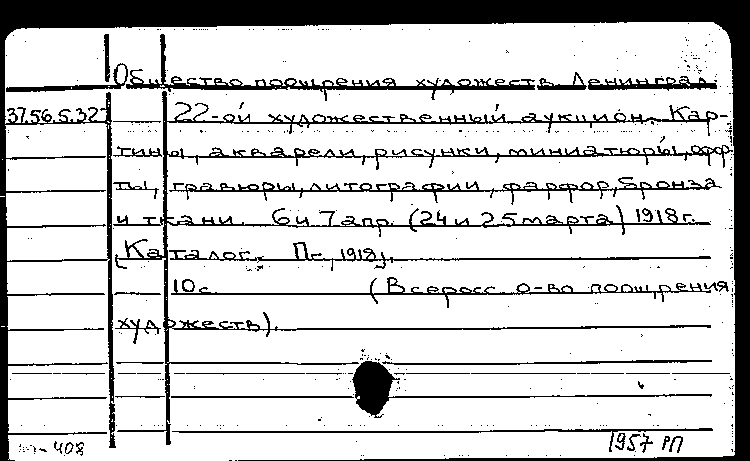 Общество поощрения художеств. Ленинград.
37.56.5.327 22-ой художественный аукцион. Кар-
тины, акварели, рисунки, миниатюры, офор
ты, гравюры, литографии, фарфор, бронза
и ткани. 6 и 7 апр. (24 и 25 марта) 1918 г.
[Каталог. Пг., 1918].
10 с. (Всеросс. о-во поощрения
художеств).
408 1957 РП